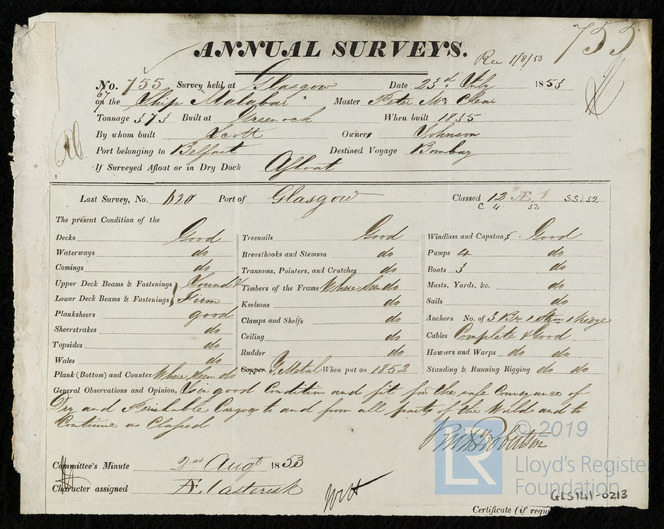 ANNUAL SURVEYS.
Rec 1/8/53
755
No. 755 Survey held at Glasgow Date 23rd July 1853
67
on the Ship "Malabar" Master Peter
Tonnage 373 Built at Greenock When built 1835
By whom built Scott Owner Johnson
Port belonging to Belfast Destined Voyage Bombay
If Surveyed Afloat or in Dry Dock Afloat
Last Survey, No. 420 Port of Glasgow Classed 12 Æ 1 SS.52
C 4 52
The present Condition of the
Decks Good Treenails Good Windlass and Capstan 5. Good
Waterways do Breasthooks and Stemson do Pumps 4 do
Comings do Transoms, Pointers, and Crutches do Boats 3 do
Upper Deck Beams & Fastenings Sound & Timbers of the Frame Where seen do Masts, Yards, &c. do
Lower Deck Beams & Fastenings Firm Keelsons do Sails do
Planksheers good Clamps and Shelfs do Anchors No. of 3 Br 1 Strm 1 Kedge
Sheerstrakes do Ceiling do Cables Complete & Good
Topsides do Rudder do Hawsers and Warps do do
Wales do Copper Y Metal When put on 1852 Standing & Running Rigging do do
Plank (Bottom) and Counter Where seen do
General Observations and Opinion, Is in good Condition and fit for the safe Conveyance of
Dry and Perishable Cargoes to and from all parts of the World and to
Continue as Classed
Robertson
© 2019
Lloyd's Register
Foundation
LR
Committee's Minute 2nd Augt 1853
Character assigned Æ 1 asterisk
GLS141-0213
Certificate (if